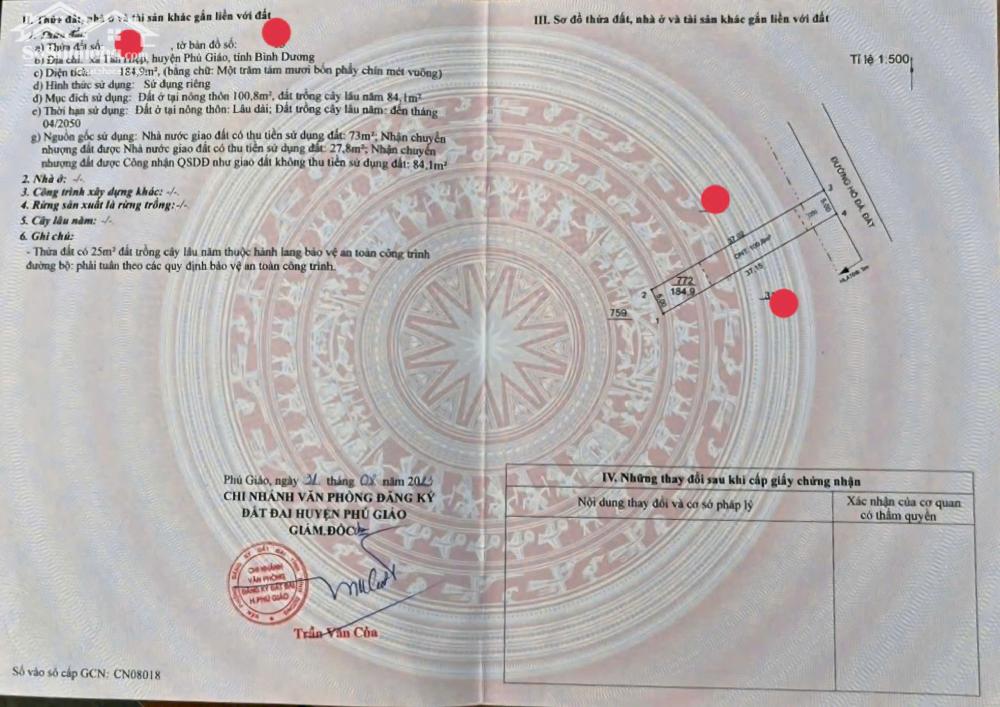 II. Thửa đất, nhà ở và tài sản khác gắn liền với đất
1. Thửa đất:
a) Thửa đất số: , tờ bản đồ số:
b) Địa chỉ: xã Tân Hiệp, huyện Phú Giáo, tỉnh Bình Dương
c) Diện tích: 184,9m², (bằng chữ: Một trăm tám mươi bốn phẩy chín mét vuông)
d) Hình thức sử dụng: Sử dụng riêng
đ) Mục đích sử dụng: Đất ở tại nông thôn 100,8m², đất trồng cây lâu năm 84,1m²
e) Thời hạn sử dụng: Đất ở tại nông thôn: Lâu dài; Đất trồng cây lâu năm: đến tháng
04/2050
g) Nguồn gốc sử dụng: Nhà nước giao đất có thu tiền sử dụng đất: 73m²; Nhận chuyển
nhượng đất được Nhà nước giao đất có thu tiền sử dụng đất: 27,8m²; Nhận chuyển
nhượng đất được Công nhận QSDĐ như giao đất không thu tiền sử dụng đất: 84,1m²
2. Nhà ở: -/-
3. Công trình xây dựng khác: -/-
4. Rừng sản xuất là rừng trồng: -/-
5. Cây lâu năm: -/-
6. Ghi chú:
- Thửa đất có 25m² đất trồng cây lâu năm thuộc hành lang bảo vệ an toàn công trình
đường bộ: phải tuân theo các quy định bảo vệ an toàn công trình.
Phú Giáo, ngày 21 tháng 08 năm 2023
CHI NHÁNH VĂN PHÒNG ĐĂNG KÝ
ĐẤT ĐAI HUYỆN PHÚ GIÁO
GIÁM ĐỐC
CHI NHÁNH
VĂN PHÒNG
ĐĂNG KÝ ĐẤT ĐAI
H.PHÚ GIÁO
Trần Văn Của
Số vào sổ cấp GCN: CN08018
III. Sơ đồ thửa đất, nhà ở và tài sản khác gắn liền với đất
Tỉ lệ 1:500
ĐƯỜNG HỐ ĐÁ ĐẤT
3
5.00
4
37.02
ONT: 100.8m²
37.15
2
772
184.9
5.00
1
759
IV. Những thay đổi sau khi cấp giấy chứng nhận
Nội dung thay đổi và cơ sở pháp lý
Xác nhận của cơ quan
có thẩm quyền